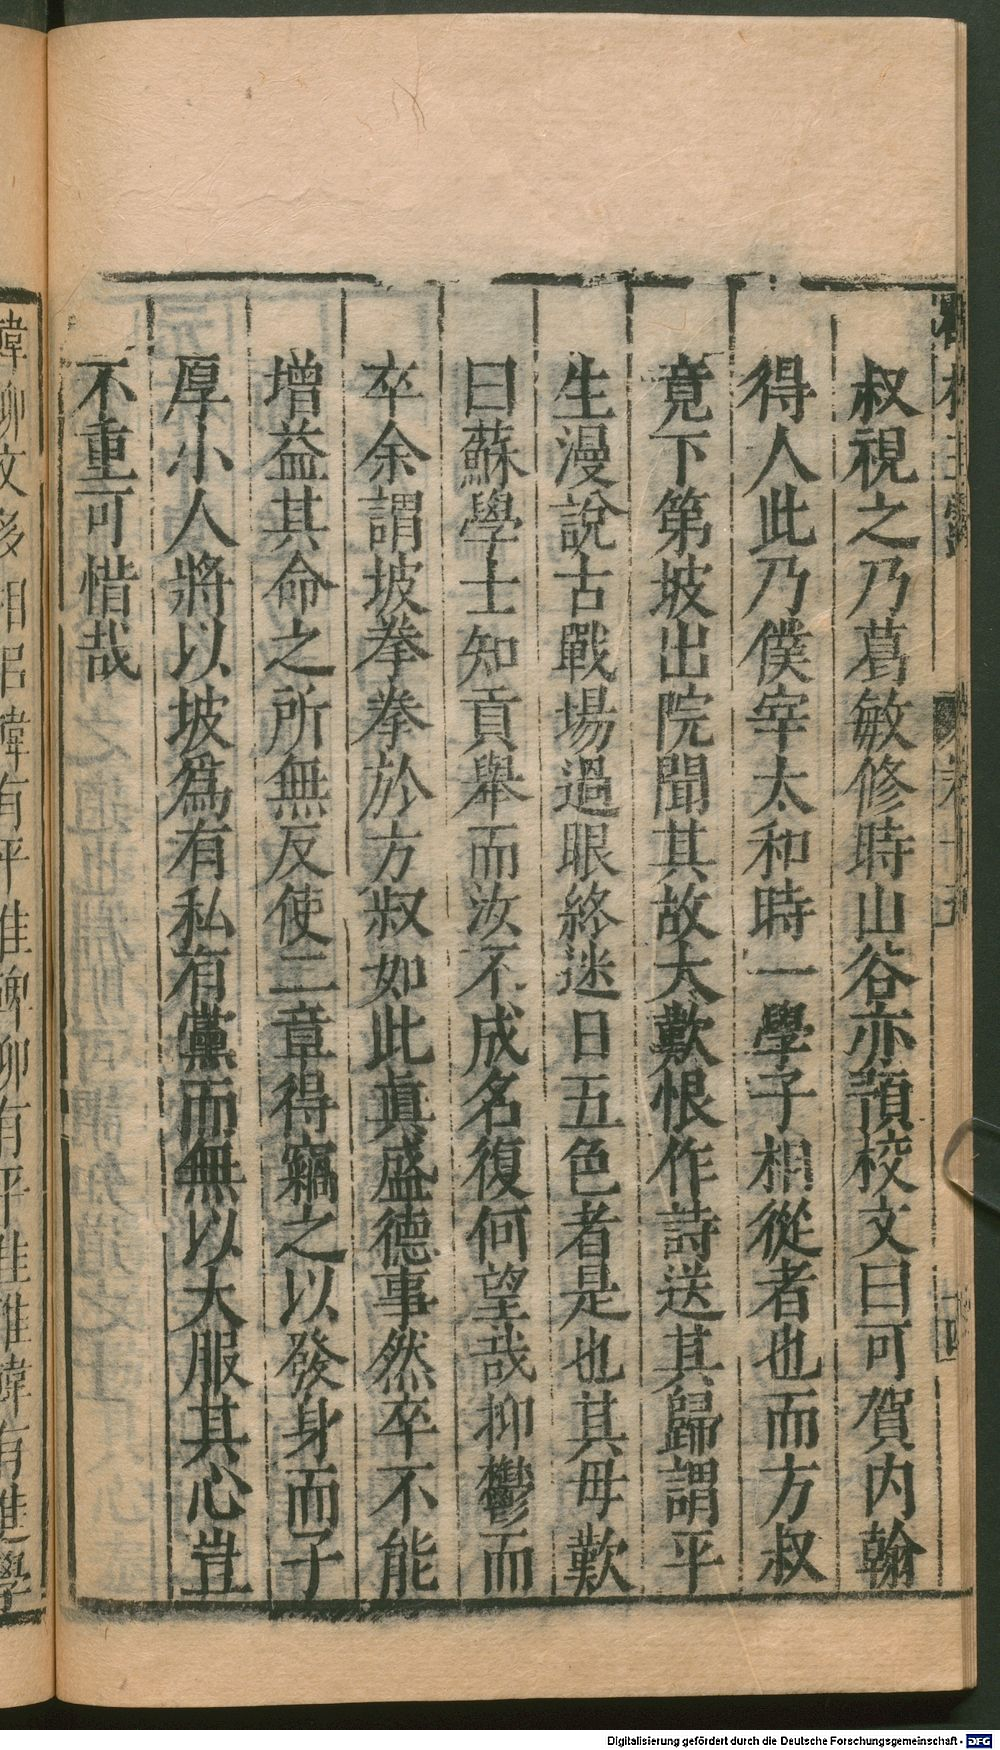 叔視之乃葛敏修時山谷亦預校文曰可賀內翰
得人此乃僕宰太和時一學子相從者也而方叔
竟下第坡出院聞其故大歎恨作詩送其歸謂平
生漫說古戰場過眼終迷日五色者是也其母歎
曰蘇學士知貢舉而汝不成名復何望哉抑鬱而
卒余謂坡拳拳於方叔如此真盛德事然卒不能
增益其命之所無反使二章得竊之以發身而子
厚小人將以坡為有私有黨而無以大服其心豈
不重可惜哉
Digitalisierung gefördert durch die Deutsche Forschungsgemeinschaft - DFG